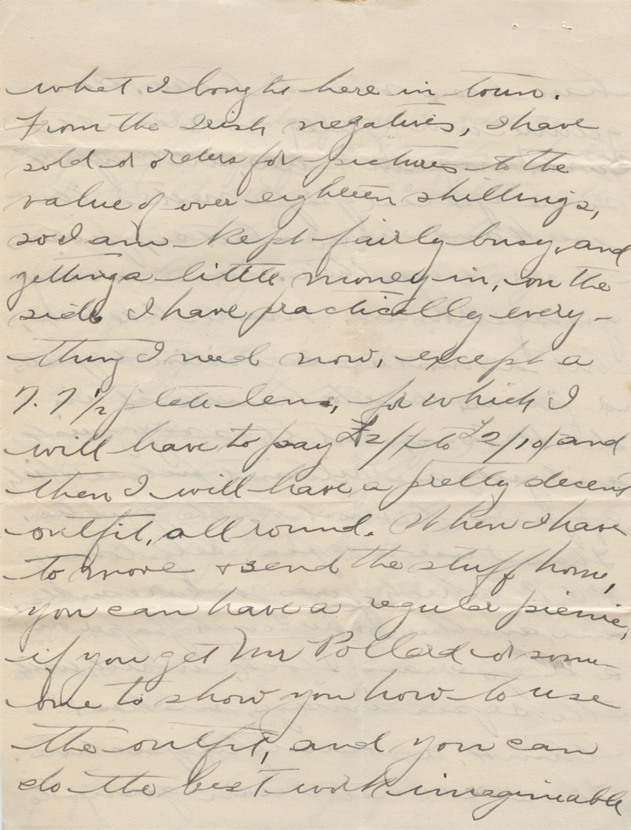 what I bought here in town.
From the Irish negatives, I have
sold or orders for pictures to the
value of over eighteen shillings,
so I am kept fairly busy, and
getting a little money in, on the
side I have practically every-
thing I need now, except a
7.7 1/2 plate lens, for which I
will have to pay £2/7 to £2/10/ and
then I will have a pretty decent
outfit, all round. When I have
to move & send the stuff home,
you can have a regular picnic,
if you get Mr Pollard or some-
one to show you how to use
the outfit, and you can
do the best work imaginable